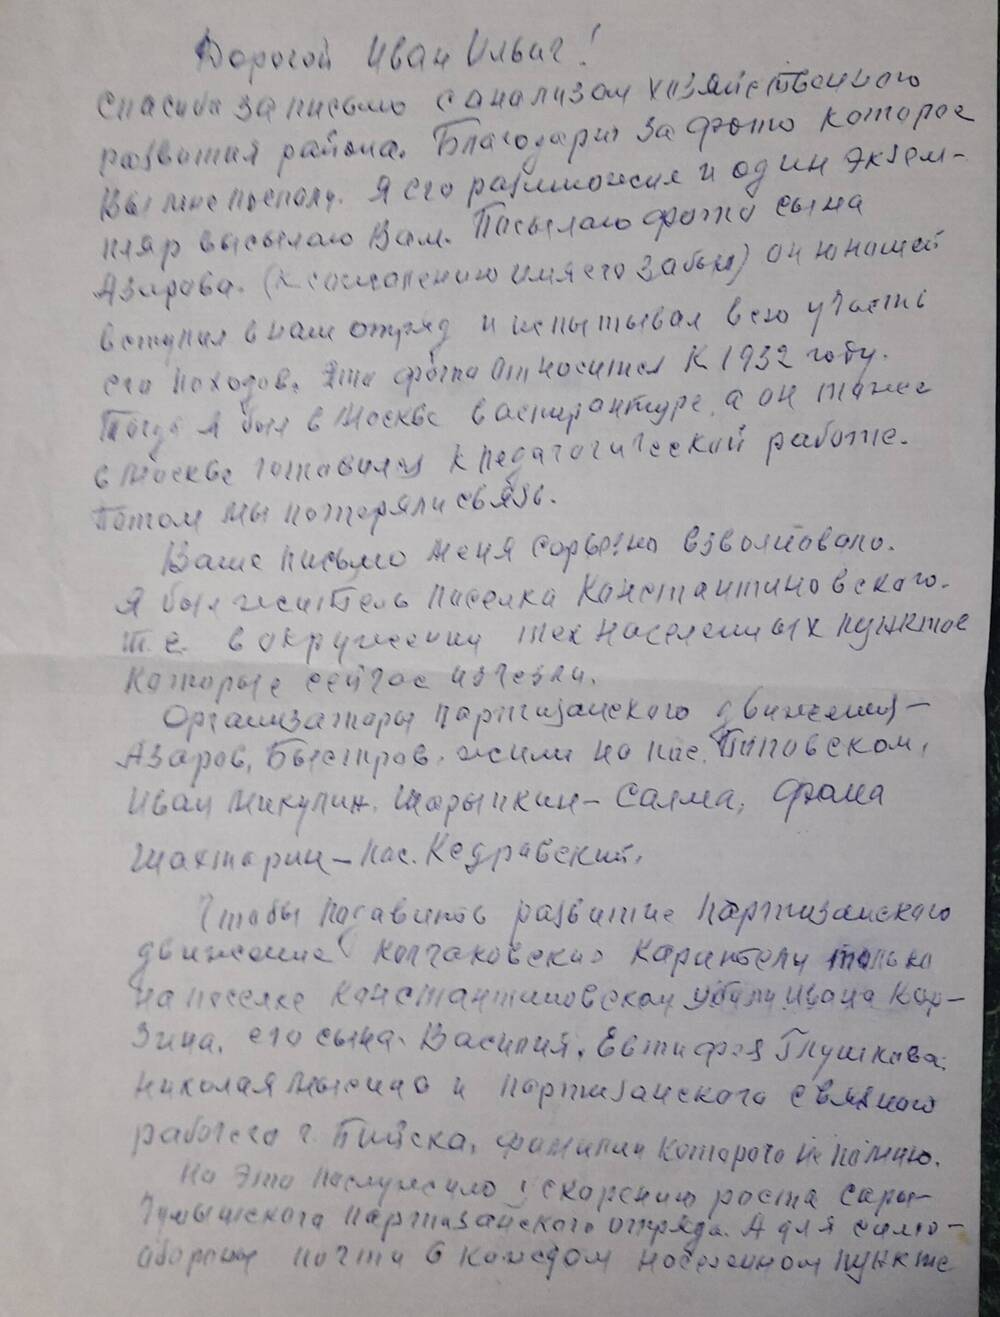 Дорогой Иван Ильич!
Спасибо за письмо с анализом хозяйственного
развития района. Благодарю за фото которое
Вы мне послали. Я его размножил и один экзем-
пляр высылаю Вам. Посылаю фото сына
Азарова. (К сожалению имя его забыл) он юношей
вступил в наш отряд и испытывал всю участь
его походов. Это фото относится к 1932 году.
Тогда я был в Москве в аспирантуре, а он также
в Москве готовился к педагогической работе.
Потом мы потеряли связь.
Ваше письмо меня взволновало.
Я был житель поселка Константиновского.
т.е. в окружении тех населенных пунктов
которые сейчас исчезли.
Организаторы партизанского движения –
Азаров, Быстров, жили на пос. Поповском,
Иван Никулин, Шарыпкин – Салма, Фома
Шахторин – пос. Кедравский.
Чтобы подавить развитие партизанского
движение колчаковские каратели только
на поселке Константиновском убили Ивана Кор-
зина, его сына Василия, Евтифея Глушкова,
Николая Мысина и партизанского связного
рабочего г. Бийска, фамилии которого не помню.
Но это послужило ускорению роста Сары-
Чумышского партизанского отряда. А для само-
обороны почти в каждом населенном пункте